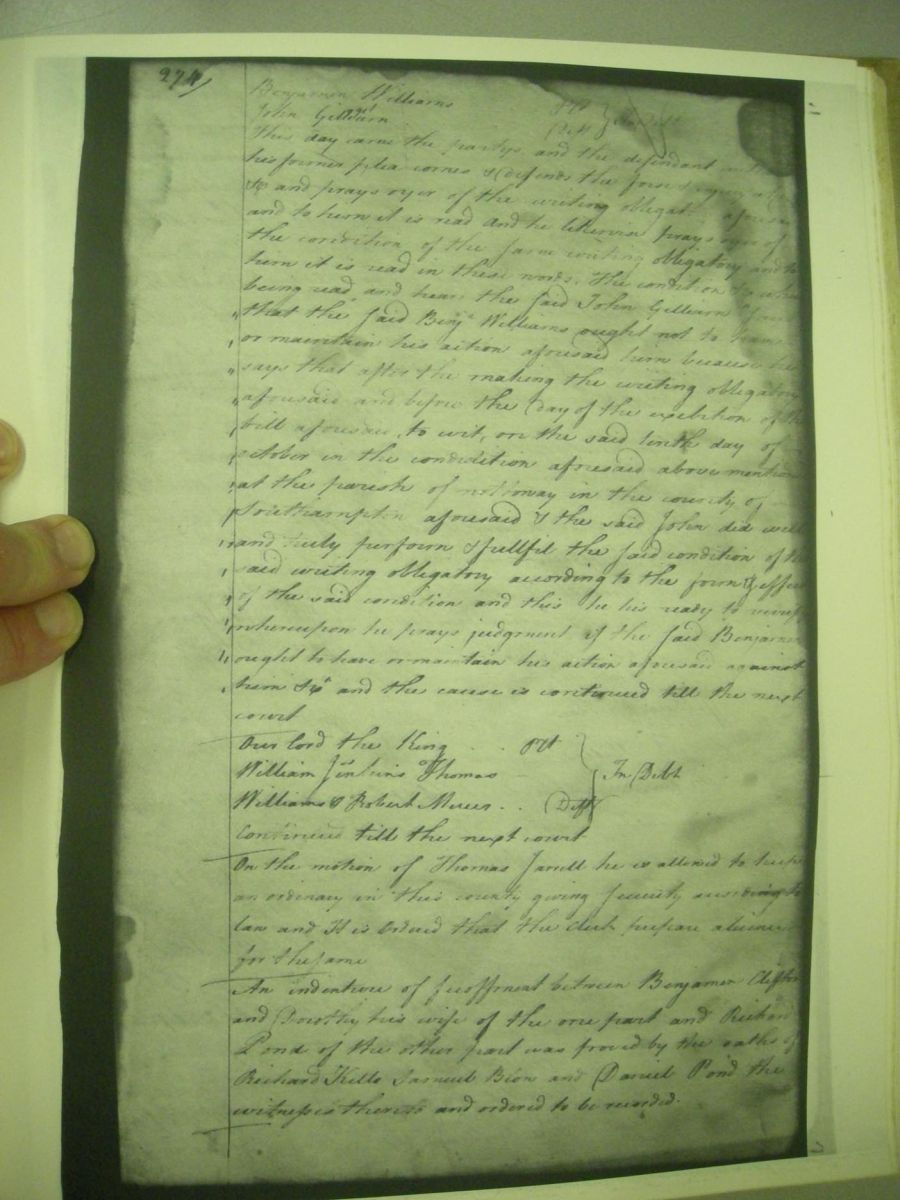 274/
Benjamin Williams Plt
John Gilliam Deft In Debt
This day came the partys and the defendant
his former plea comes & defends the force & injury
&c and prays oyer of the writing obligat
and to him it is read and he likewise prays oyer of
the condition of the same writing obligatory and to
him it is read in these words, the condition &c which
being read and heard the said John Gilliam
that the said Benja Williams ought not to have
or maintain his action aforesaid him because he
says that after the making the writing obligatory
aforesaid and before the day of the exibition of the
bill aforesaid, to wit, on the said tenth day of
october in the condidition aforesaid above mention
at the parish of nottoway in the county of
Southampton aforesaid & the said John did well
and truly perform & fullfil the said condition of the
said writing obligatory according to the form & effect
of the said condition and this he his ready to
whereupon he prays judgment if the said Benjamen
ought to have or maintain his action aforesaid against
him &c and the cause is continued till the next
court
Our lord the King Plt
William Jenkins Thomas In Debt
Williams & Robert Deft
Continued till the next court
On the motion of Thomas Jarrell he is allowed to keep
an ordinary in this county giving security according to
law and It is Ordered that the clerk prepare a licence
for the same
An indenture of feoffment between Benjamen Clifton
and Dorothy his wife of the one part and Richard
Pond of the other part was proved by the oaths of
Richard Kello Samuel and Daniel Pond the
witnesses thereto and ordered to be recorded.